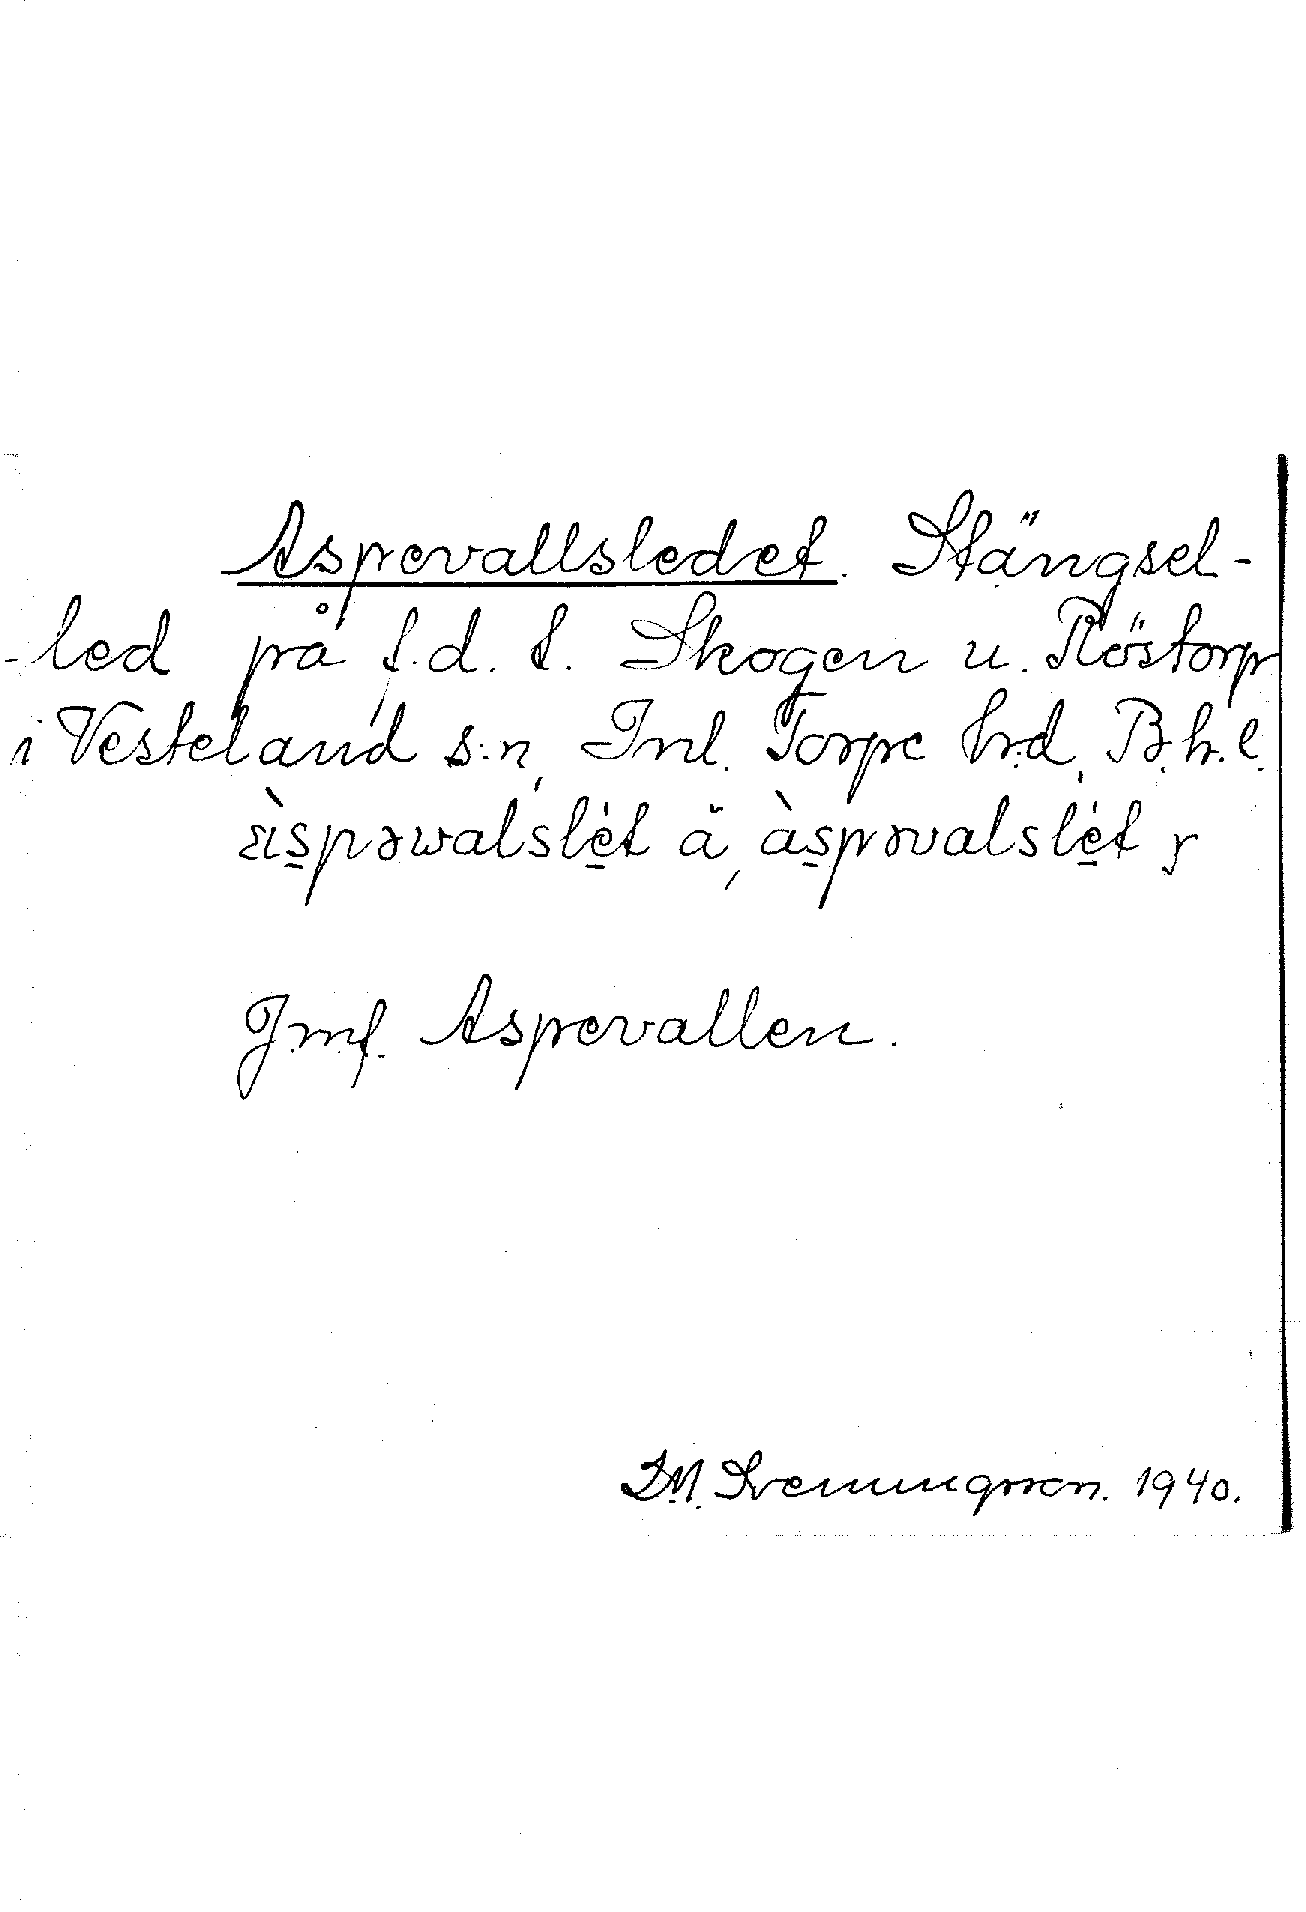 Aspevallsledet. Stängsel-
-led på f.d. t. Skogen u. Röstorp
i Vesteland s:n, Inl. Torpe hrd, B.h.l.
àspəwalslèt ä, àspəvalslèt
Jmf. Aspevallen.
D.M. Svenningsson. 1940.